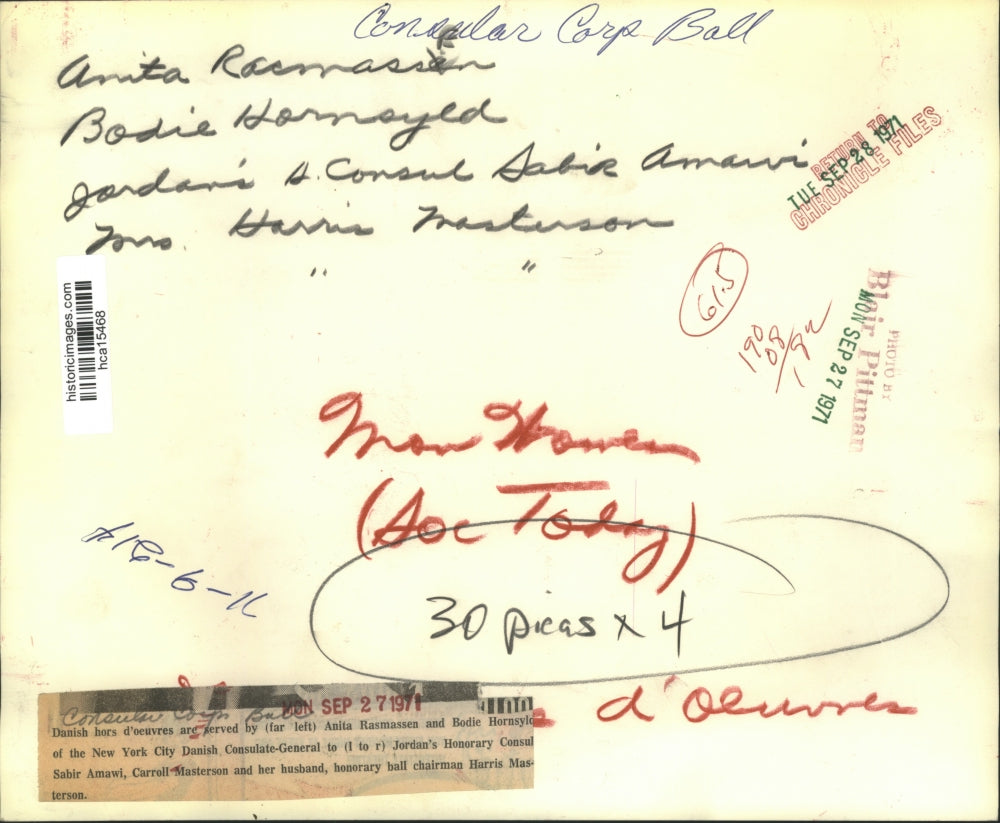 Consular Corp Ball
Anita Rasmassen
Bodie Hornsyld
Jordan's H. Consul Sabir Amawi
Mrs. Harris Masterson
" "
RETURN TO
TUE SEP 28 1971
CHRONICLE FILES
historicimages.com
hca15468
61.5
PHOTO BY
Blair Pittman
MON SEP 27 1971
Mon Women
(Soc Today)
30 picas x 4
d'Oeuvres
MON SEP 27 1971
Consular Corps Ball
Danish hors d'oeuvres are served by (far left) Anita Rasmassen and Bodie Hornsyld
of the New York City Danish Consulate-General to (l to r) Jordan's Honorary Consul
Sabir Amawi, Carroll Masterson and her husband, honorary ball chairman Harris Mas-
terson.